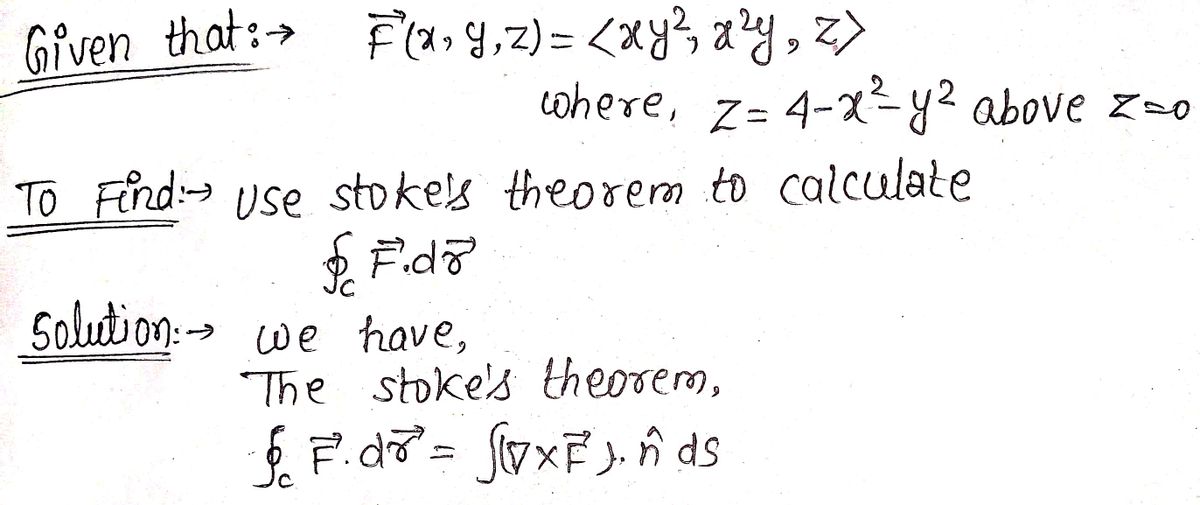 Given that:→ F⃗(x, y, z) = <xy², x²y, z>
where, z = 4-x²-y² above z=0
To Find:→ use stoke's theorem to calculate
∮c F⃗.dr⃗
Solution:→ we have,
The stoke's theorem,
∮c F⃗.dr⃗ = ∫(∇×F⃗). n̂ ds